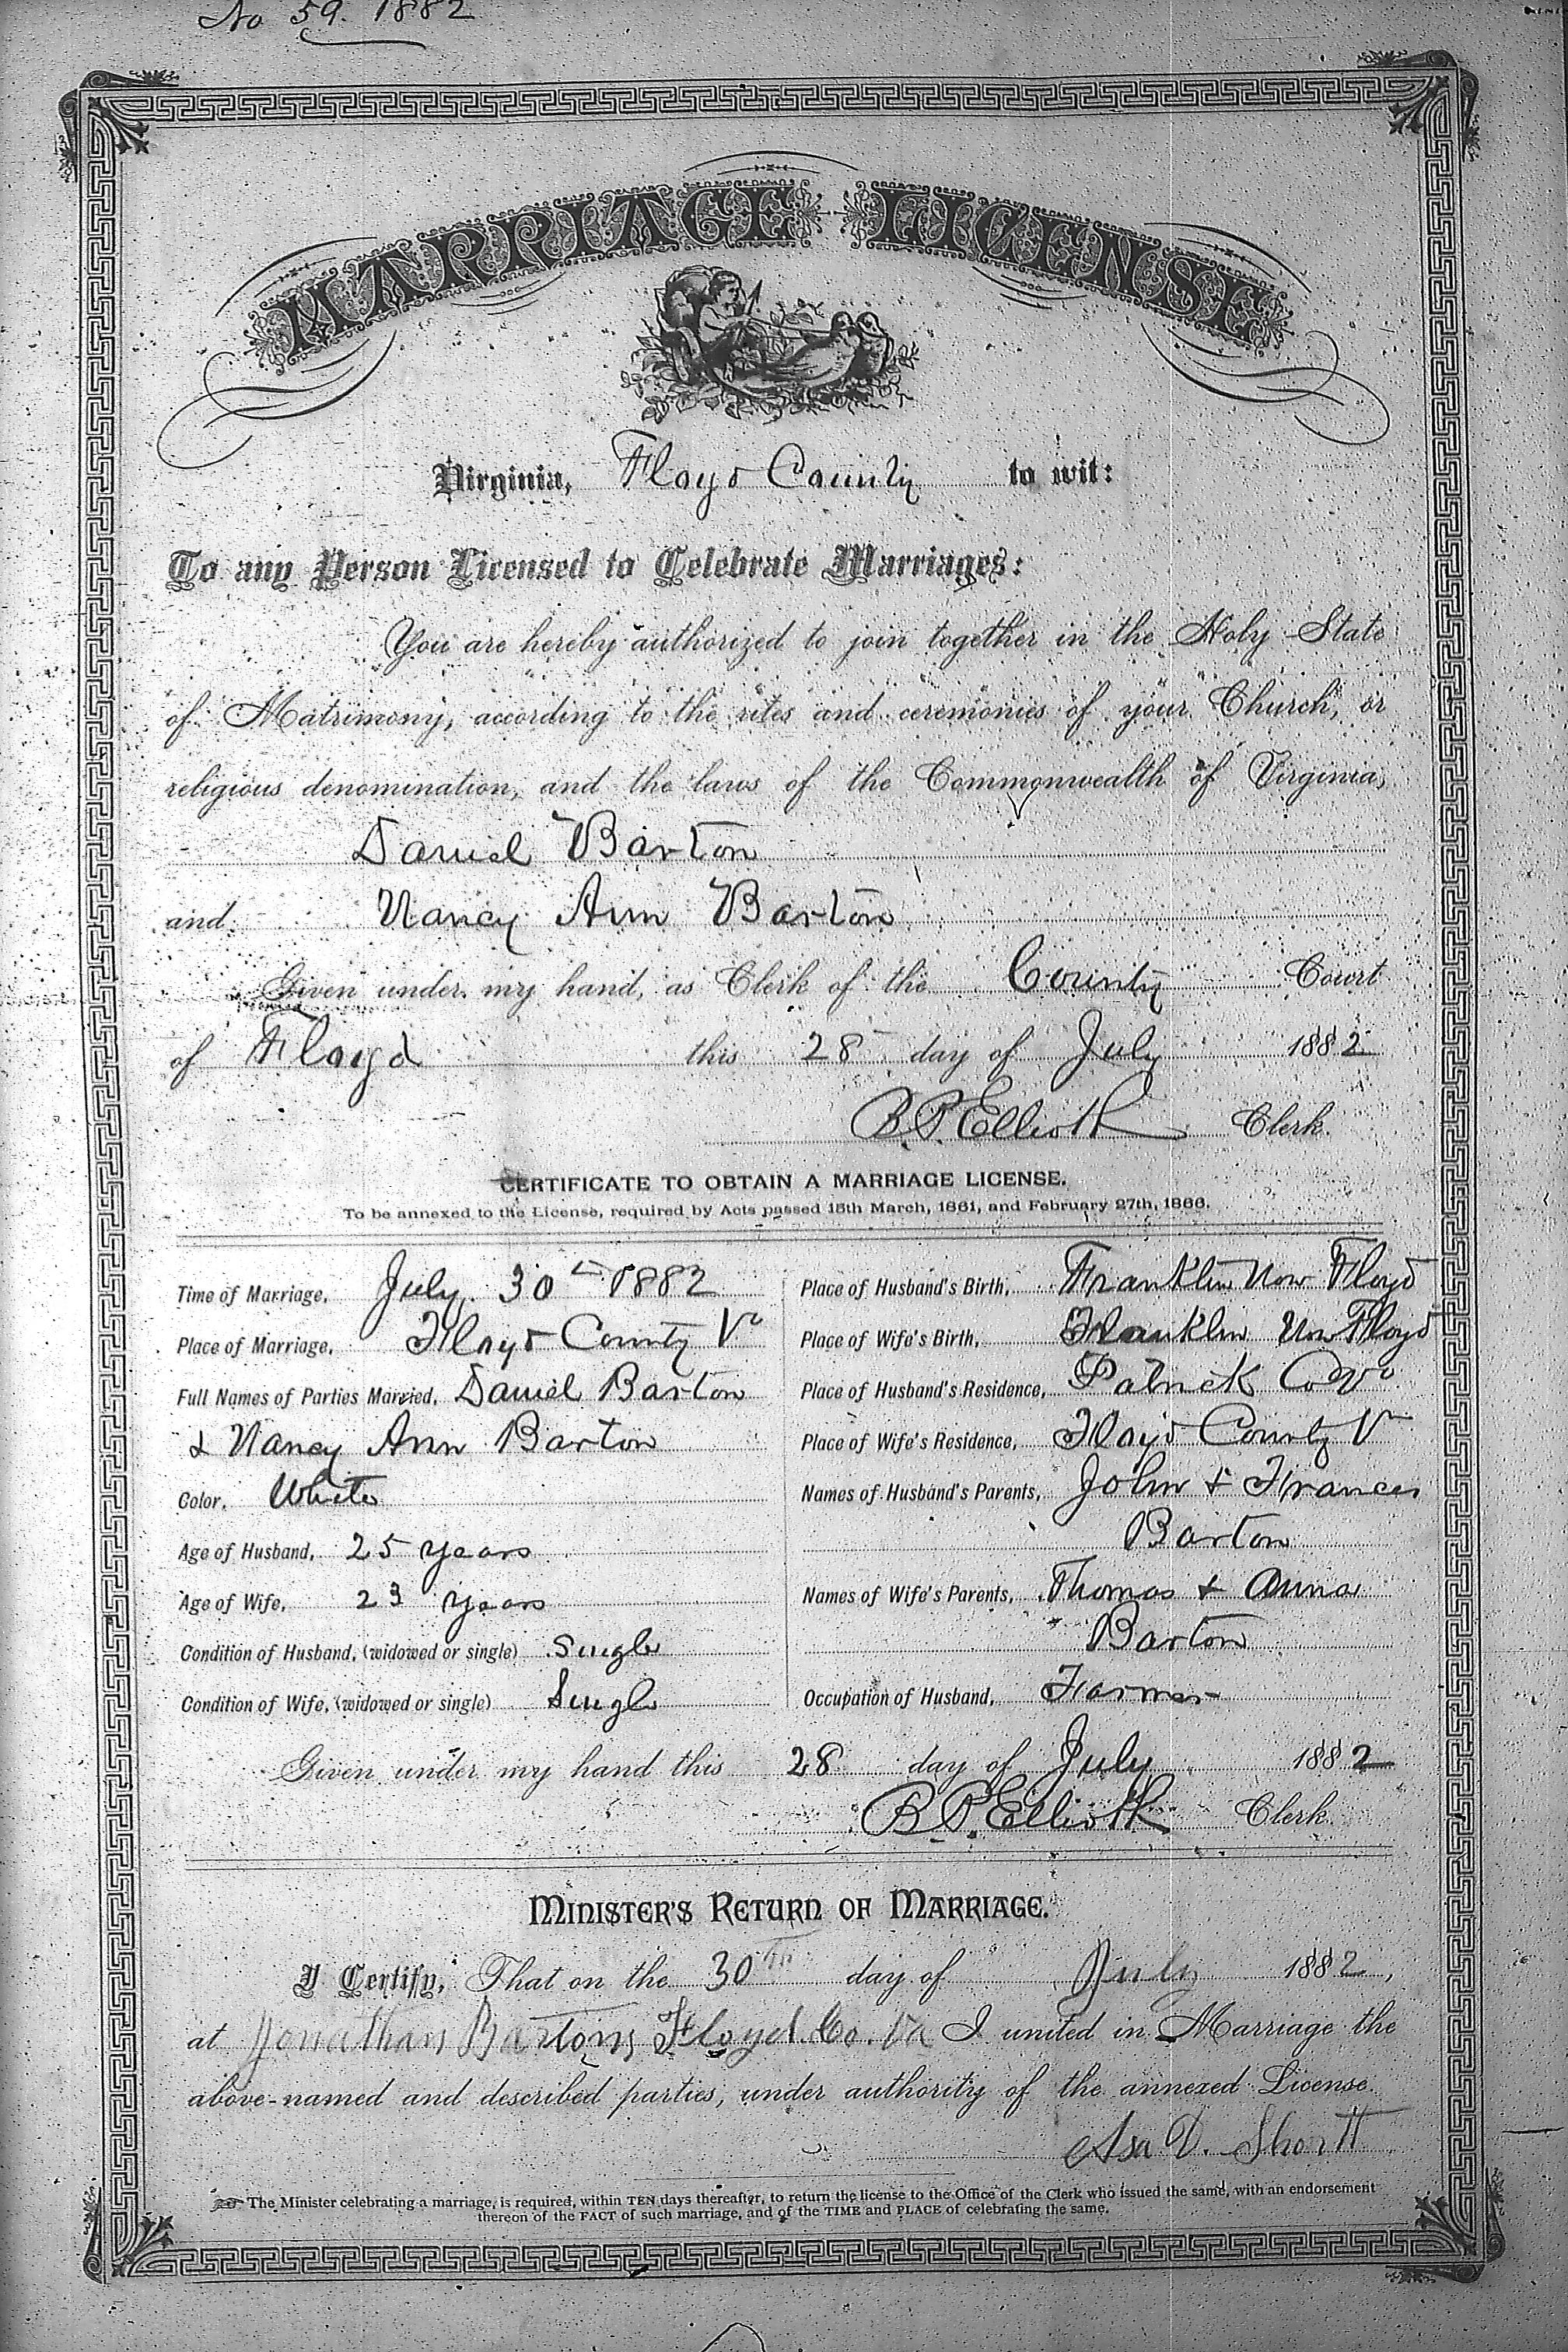 No 59. 1882
MARRIAGE LICENSE
Virginia, Floyd County to wit:
To any Person Licensed to Celebrate Marriages:
You are hereby authorized to join together in the Holy State
of Matrimony, according to the rites and ceremonies of your Church, or
religious denomination, and the laws of the Commonwealth of Virginia,
Daniel Barton
and Nancy Ann Barton
Given under my hand, as Clerk of the County Court
of Floyd this 28 day of July 1882
B. P. Elliott Clerk.
CERTIFICATE TO OBTAIN A MARRIAGE LICENSE.
To be annexed to the License, required by Acts passed 15th March, 1861, and February 27th, 1866.
Time of Marriage, July 30th 1882
Place of Marriage, Floyd County Va
Full Names of Parties Married, Daniel Barton
& Nancy Ann Barton
Color, White
Age of Husband, 25 years
Age of Wife, 23 years
Condition of Husband, (widowed or single) Single
Condition of Wife, (widowed or single) Single
Place of Husband's Birth, Franklin Now Floyd
Place of Wife's Birth, Franklin Now Floyd
Place of Husband's Residence, Patrick Co Va
Place of Wife's Residence, Floyd County Va
Names of Husband's Parents, John & Frances
Barton
Names of Wife's Parents, Thomas & Anna
Barton
Occupation of Husband, Farmer
Given under my hand this 28 day of July 1882
B. P. Elliott Clerk.
MINISTER'S RETURN OF MARRIAGE.
I Certify, That on the 30th day of July 1882,
at Jonathan Bartons Floyd Co. Va I united in Marriage the
above-named and described parties, under authority of the annexed License.
Asa D. Shortt
The Minister celebrating a marriage, is required, within TEN days thereafter, to return the license to the Office of the Clerk who issued the same, with an endorsement
thereon of the FACT of such marriage, and of the TIME and PLACE of celebrating the same.